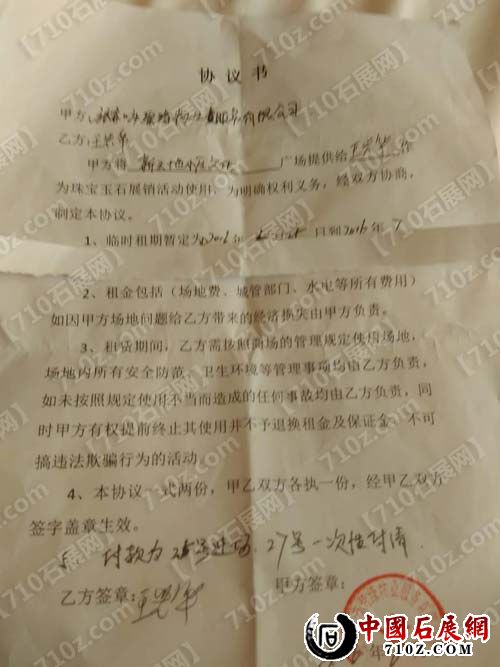 协议书
甲方：
乙方：
甲方将 广场提供给 作
为珠宝玉石展销活动使用，为明确权利义务，经双方协商，
制定本协议。
1、临时租期暂定为2016年 日到2016年
2、租金包括（场地费、城管部门、水电等所有费用）
如因甲方场地问题给乙方带来的经济损失由甲方负责。
3、租赁期间，乙方需按照商场的管理规定使用场地，
场地内所有安全防范、卫生环境等管理事项均由乙方负责，
如未按照规定使用不当而造成的任何事故均由乙方负责，同
时甲方有权提前终止其使用并不予退换租金及保证金。不可
搞违法欺骗行为的活动
4、本协议一式两份，甲乙双方各执一份，经甲乙双方
签字盖章生效。
5、付款为25号进场，27号一次性付清.
乙方签章： 甲方签章：
中國石展網
www.710z.com
【710z.com石展网】